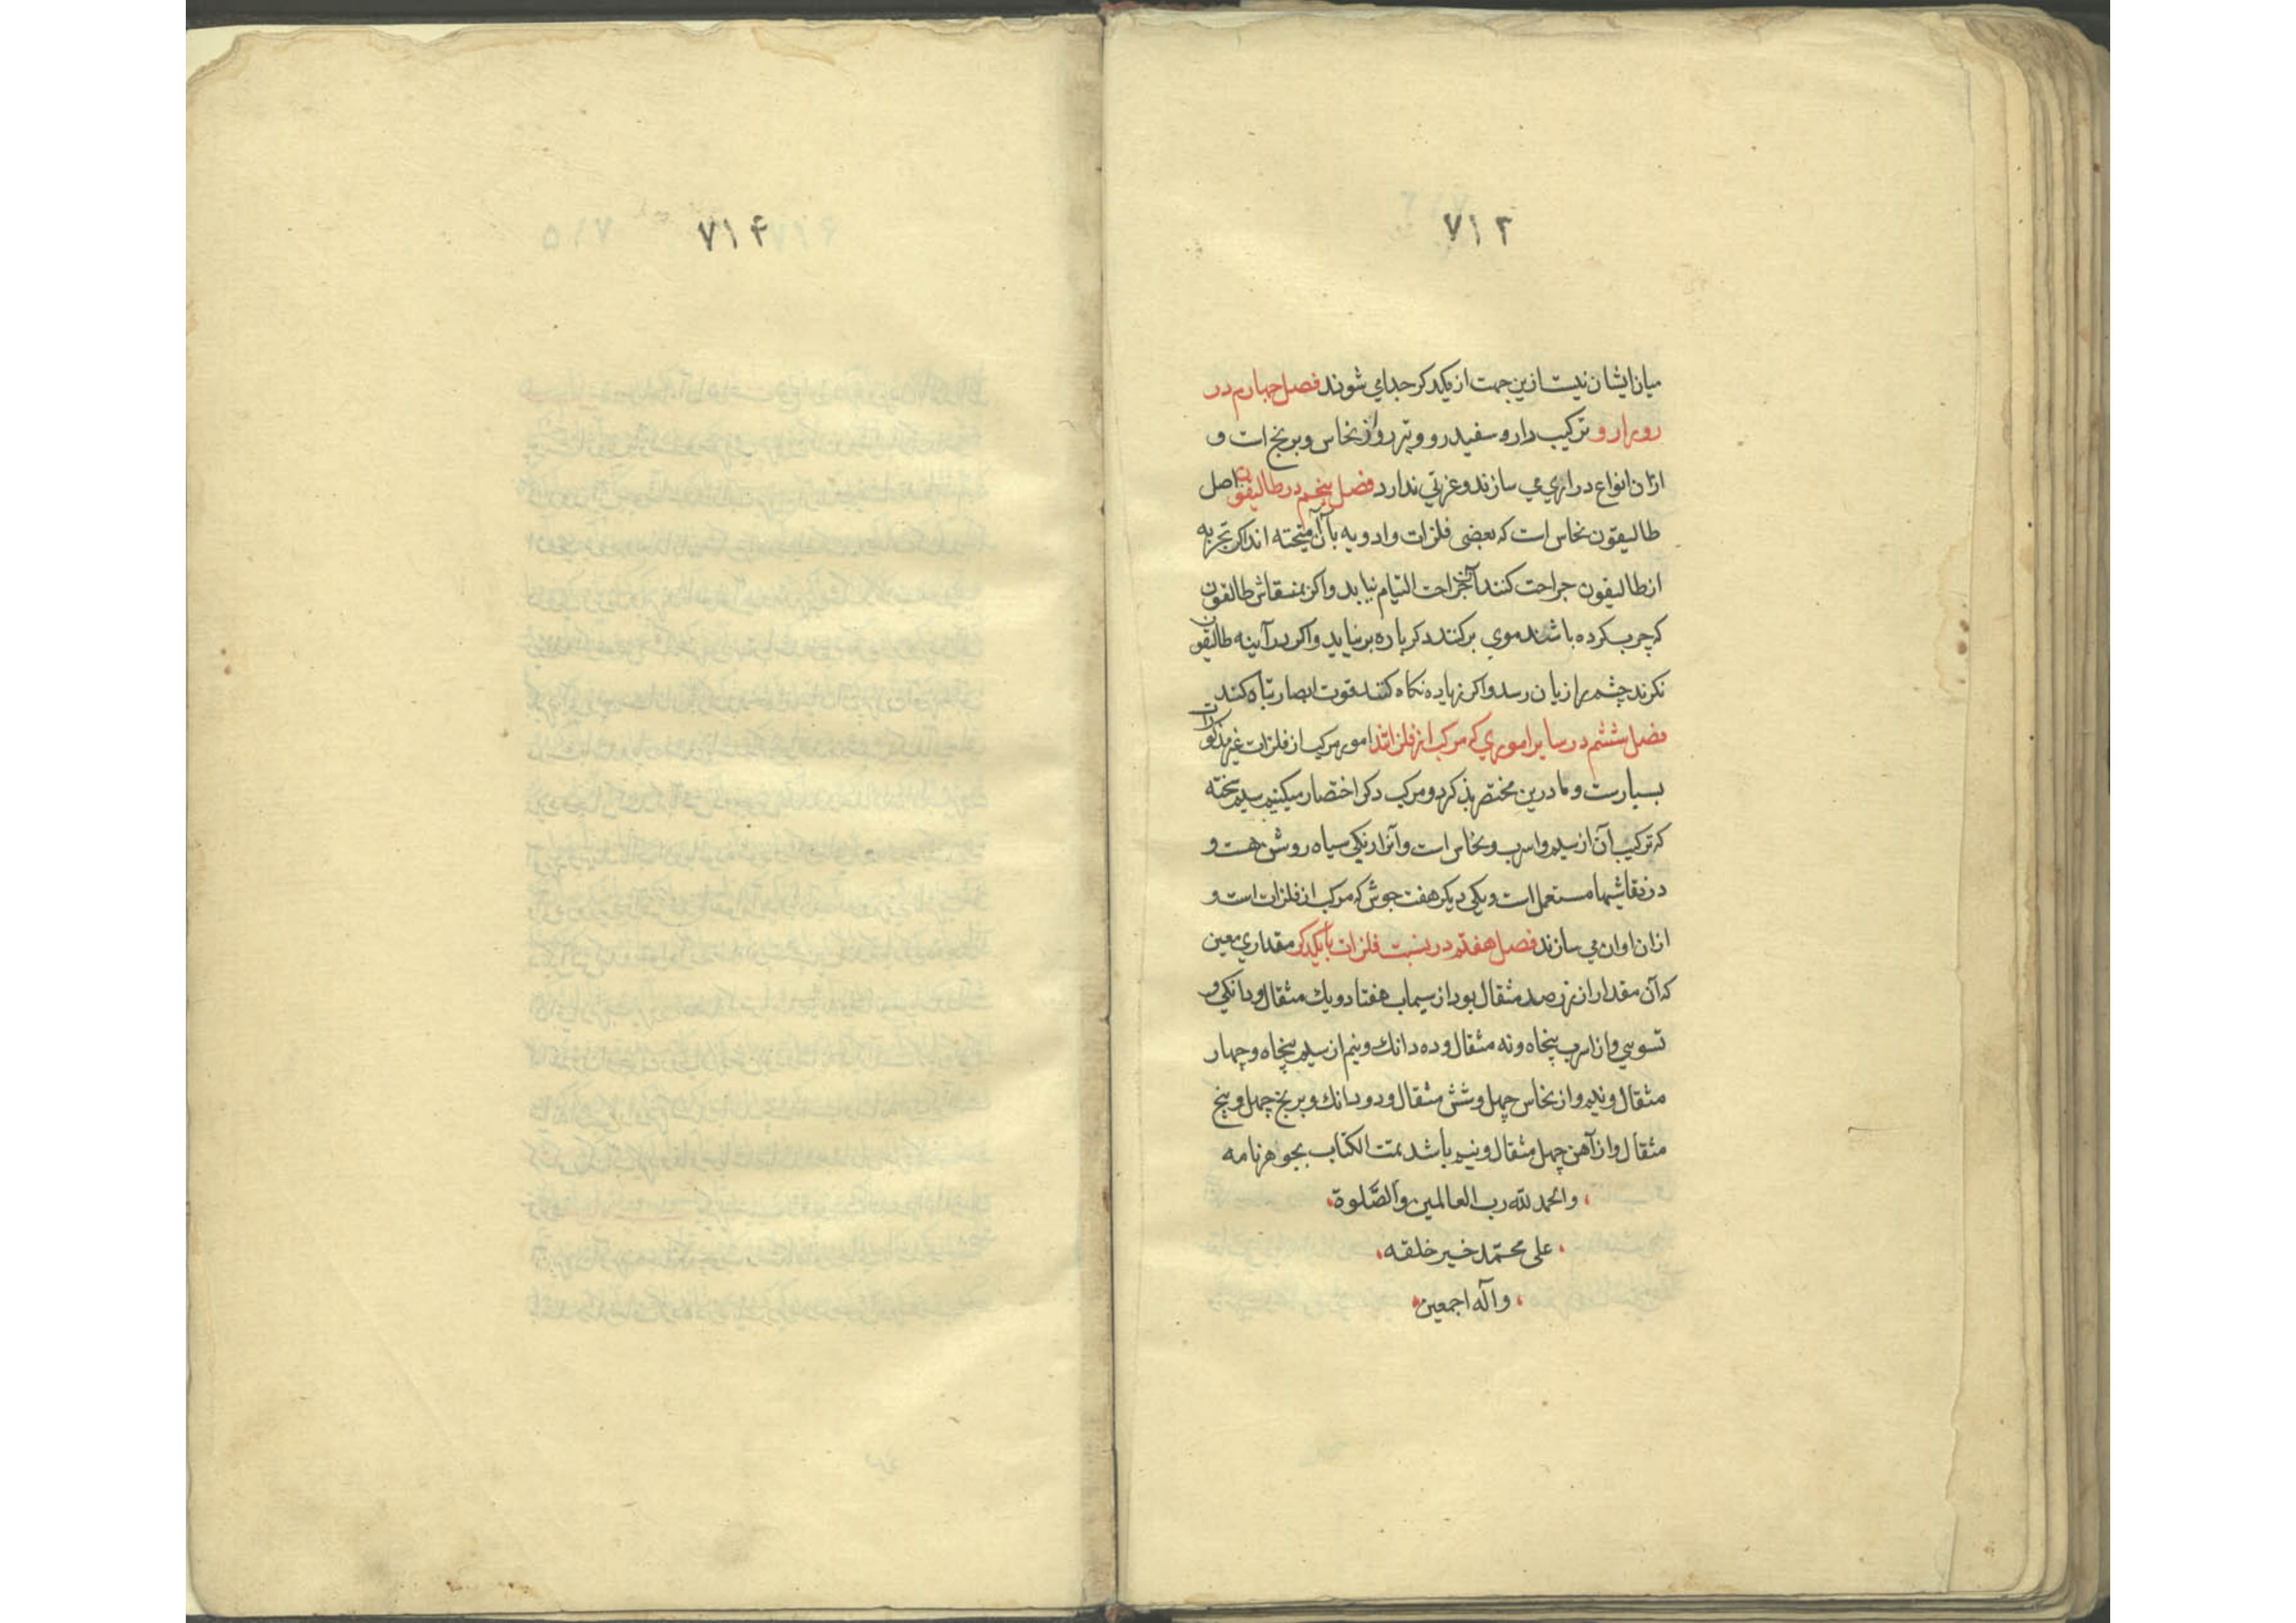 ۷۱۳
میان ایشان نیست ازین جهت از یکدکر جدای شوند فصل چهارم در
ترکیب دارو سفیدرو و از نحاس و برنج است و
ازان انواع می سازند و عزتی ندارد فصل پنجم در طالیقون اصل
طالیقون نحاس است که بعضی فلزات و ادویه با آن آمیخته اند اکر تجربه
از طالیقون جراحت کنند آن جراحت التیام نیابد و اکر بمنقاش طالیقون
که چرب کرده باشند موی برکنند دکر باره برنیاید و اکر در آینه طالیقون
نکرند چشم را زیان رسد و اکر زیاده نکاه کنند قوت ابصار تباه کند
فصل ششم در سایر اموری که مرکب از فلزاتند امور مرکب از فلزات غیر مذکورات
بسیارست و ما درین مختصر بذکر دو مرکب دکر اختصار میکنیم سیم سخته
که ترکیب آن از سیم و اسرب و نحاس است و آنرا رنکی سیاه روشن هست و
در نقاشیها مستعمل است و یکی دیکر هفت جوش که مرکب از فلزات است و
ازان اوان می سازند فصل هفتم در نسبت فلزات با یکدکر مقداری معین
که آن مقدار از زر صد مثقال بود از سیماب هفتاد و یک مثقال و دانکی و
تسویی و از اسرب پنجاه و نه مثقال و ده دانک و نیم از سیم پنجاه و چهار
مثقال و نیم و از نحاس چهل و شش مثقال و دو دانک و برنج چهل و پنج
مثقال و از آهن چهل مثقال و نیم باشد تمت الکتاب بجواهرنامه
والحمد لله رب العالمین والصّلوة
علی محمّد خیر خلقه
وآله اجمعین
۷۱۴